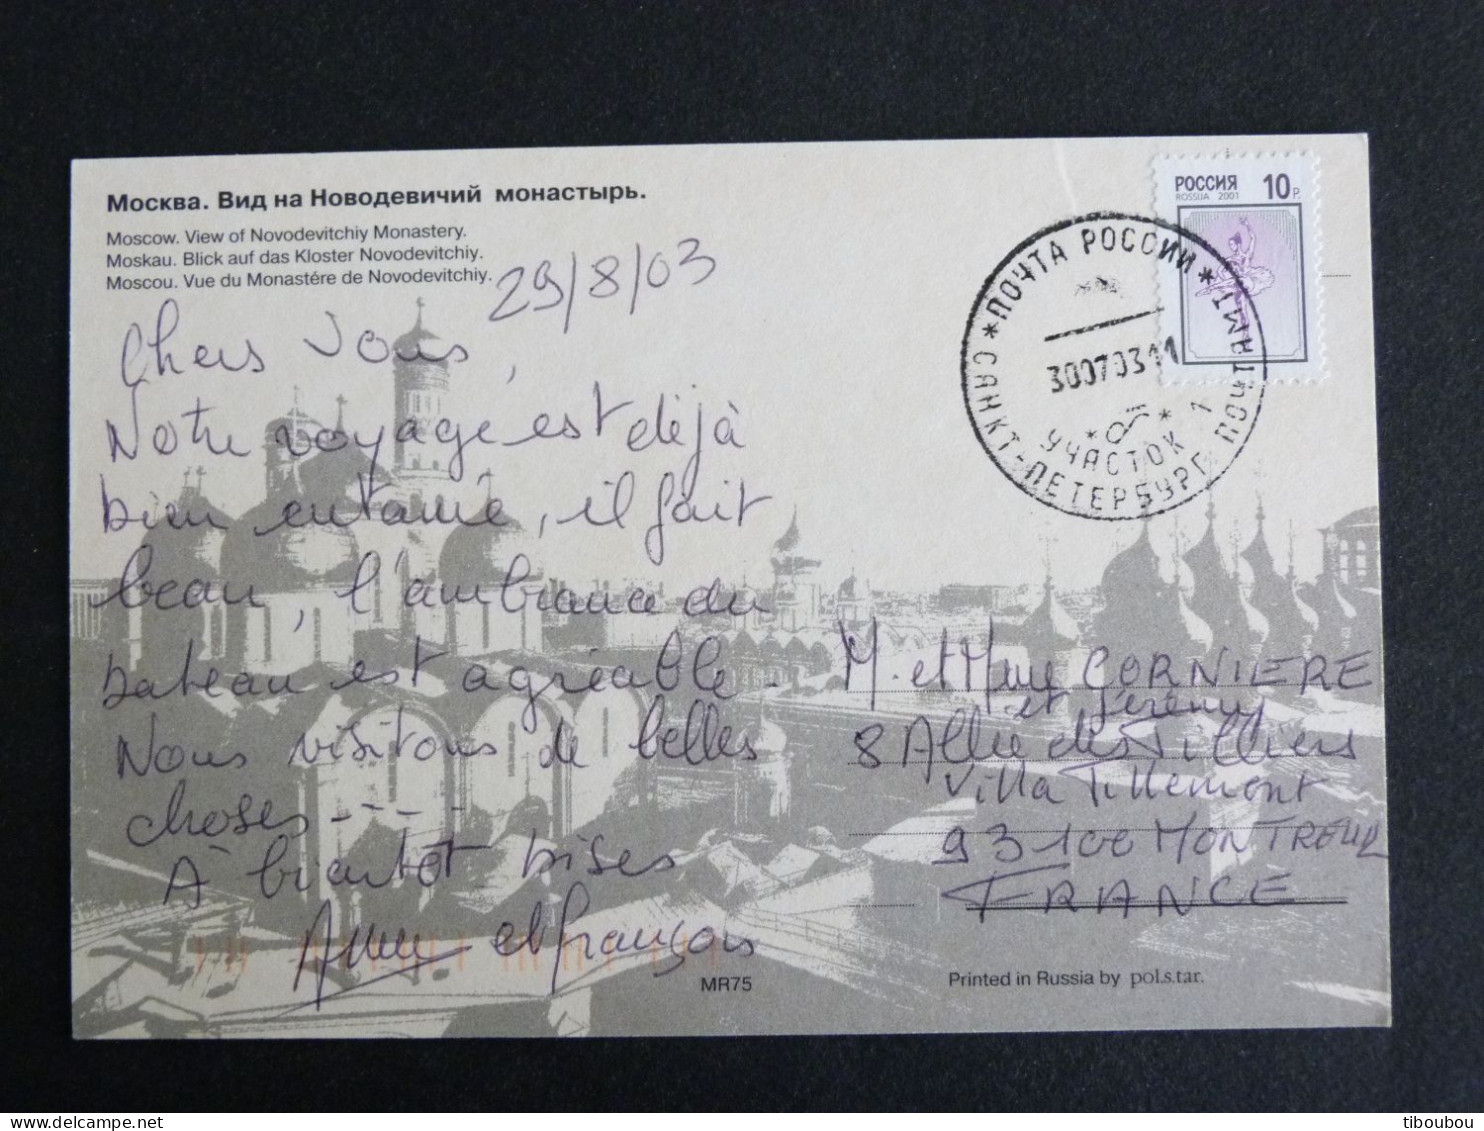 Москва. Вид на Новодевичий монастырь.
Moscow. View of Novodevitchiy Monastery.
Moskau. Blick auf das Kloster Novodevitchiy.
Moscou. Vue du Monastére de Novodevitchiy.
29/8/03
Chers Vous,
Notre voyage est déjà
bien entamé, il fait
beau, l'ambiance du
bateau est agréable.
Nous visitons de belles
choses - - - -
A bientôt bises
Anny et François
MR75
РОССИЯ 10 Р.
ROSSIJA 2001
* ПОЧТА РОССИИ *
30070311
УЧАСТОК 1
САНКТ-ПЕТЕРБУРГ ПОЧТАМТ
M. et Mme CORNIERE
et Jérémy
8 Allée des Tilliers
Villa Tillemont
93100 MONTREUIL
FRANCE
Printed in Russia by pol.s.tar.
tiboubou